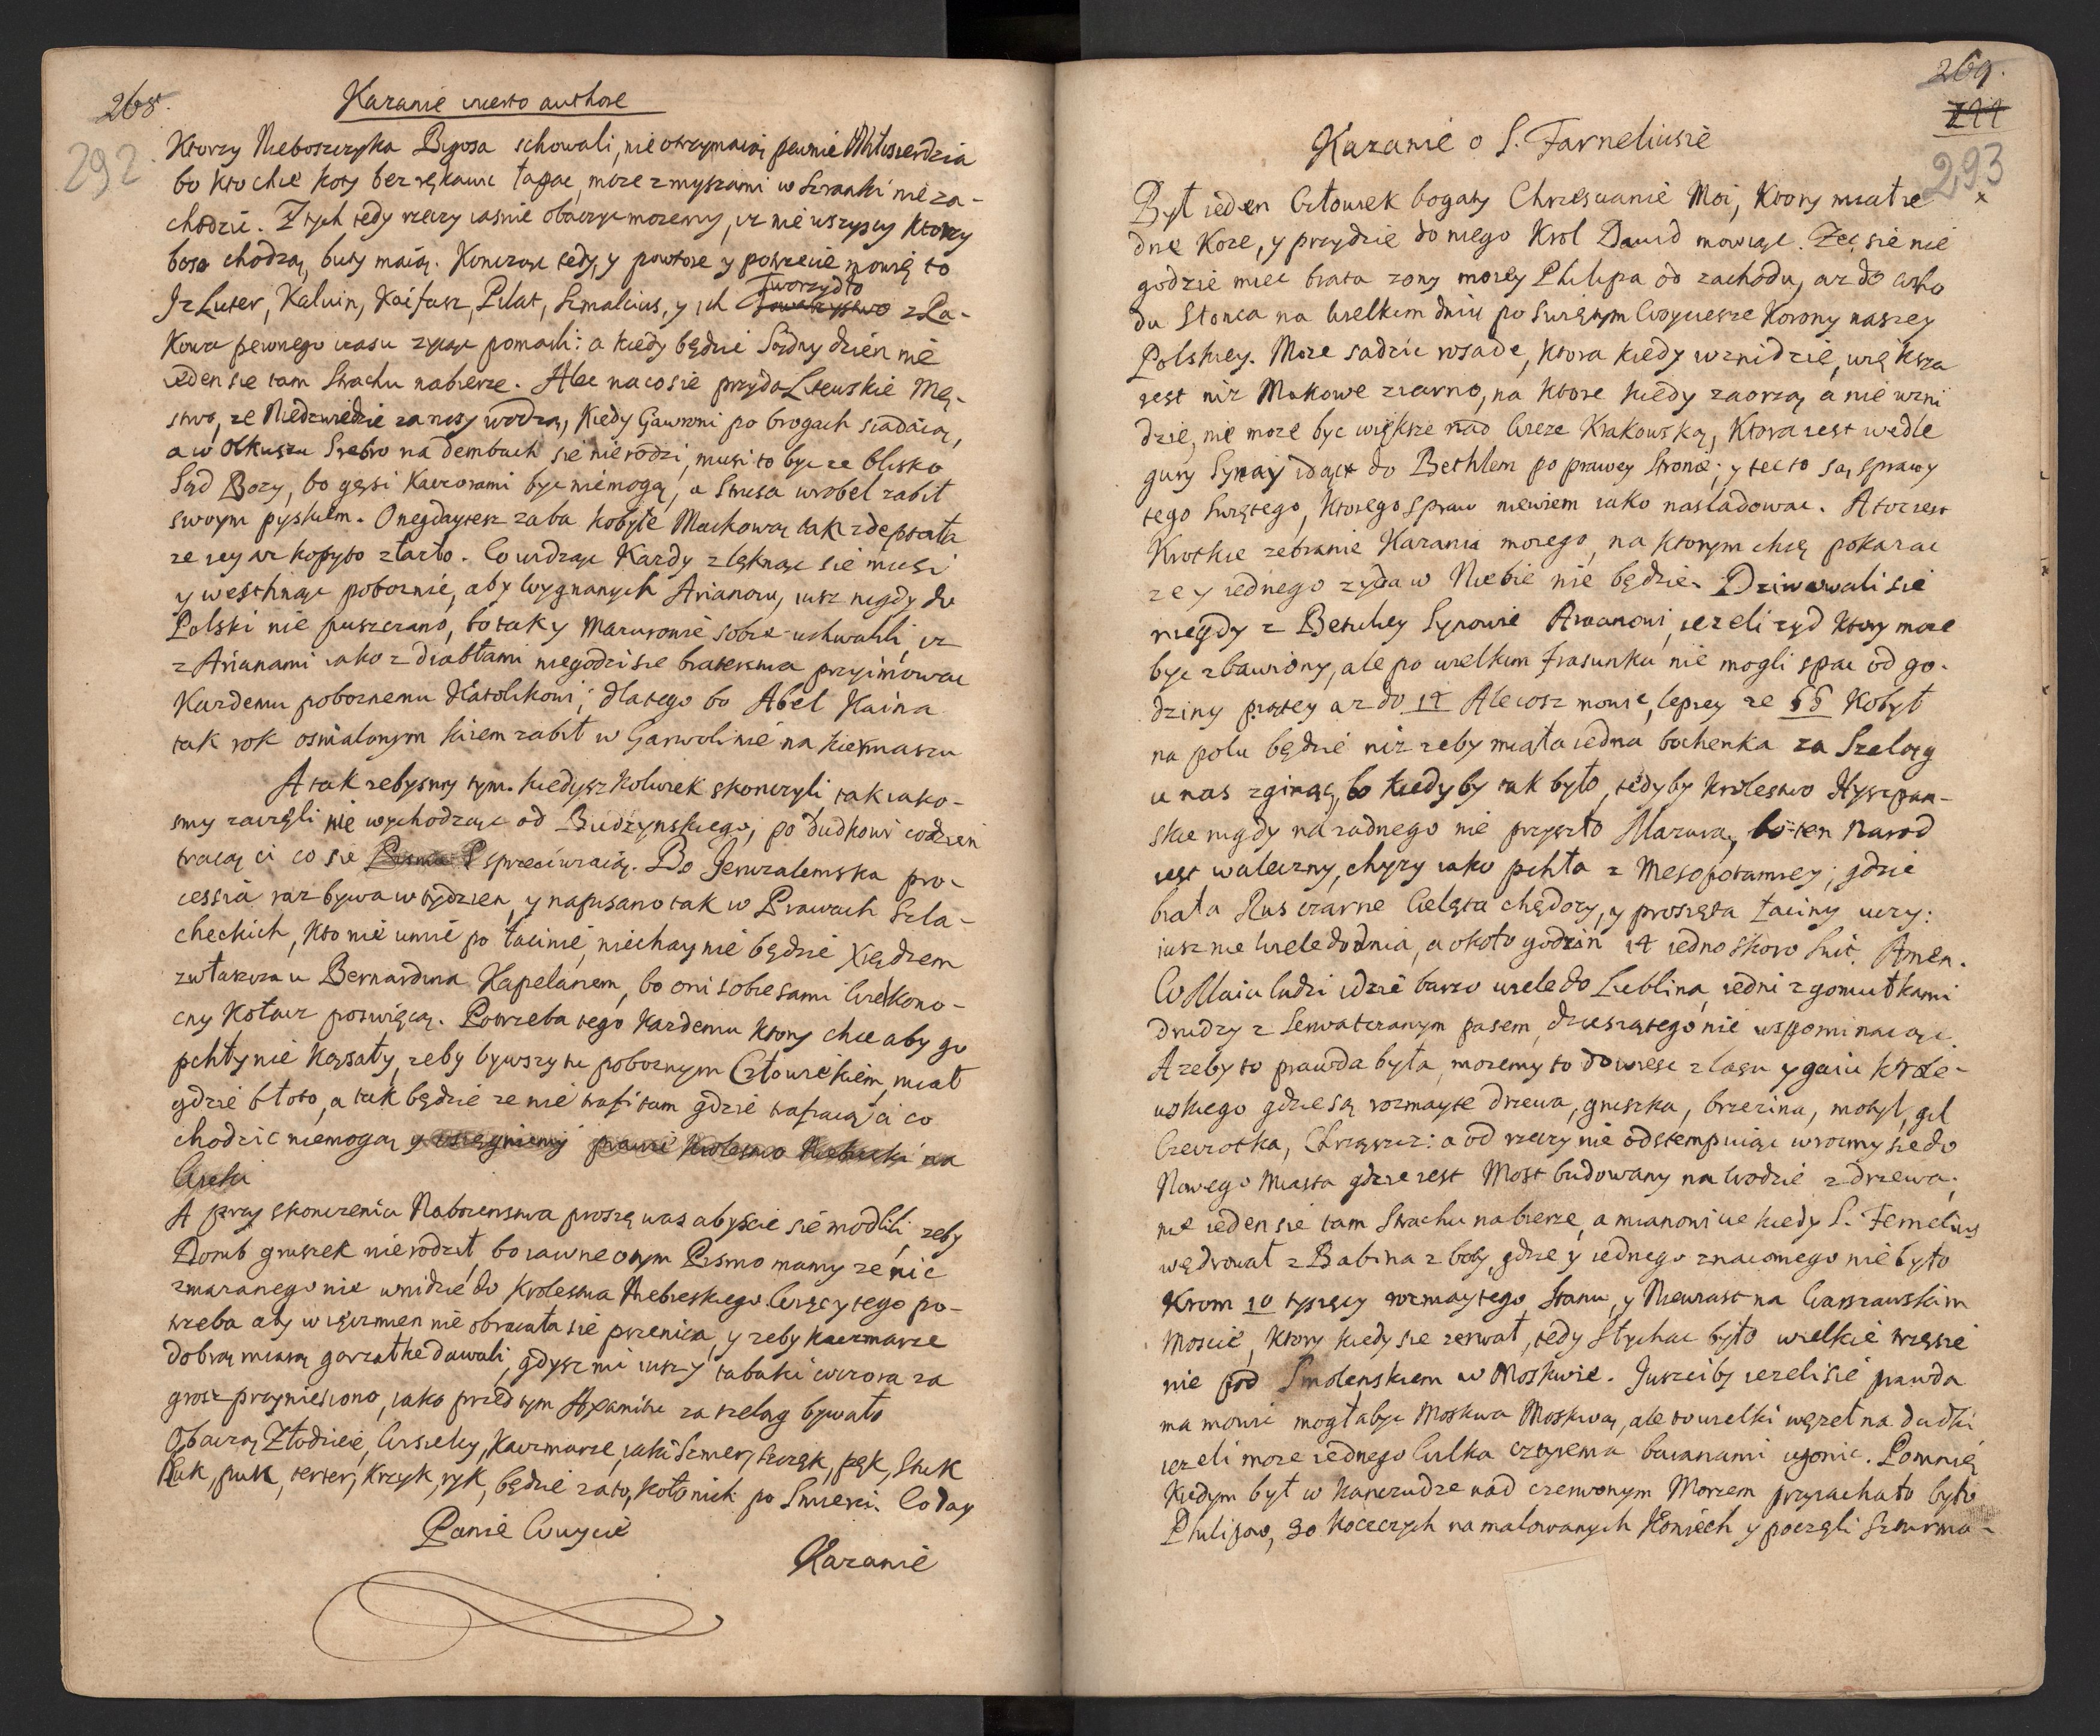 268.
292.
Kazanie incerto authore
Ktorzy Nieboszczyka Bigosa schowali, nie otrzymaią pewnie Miłosierdzia
bo kto chce koty bez rękawic łapac, moze z myszami w Szranki nie za-
chodzic. Z tych tedy rzeczy iasnie obaczyc mozemy, iz nie wszyscy ktorzy
boso chodzą, buty maią. Konczac tedy, y powtore y potrzecie mowię to
Iz Luter, Kalwin, Kaifasz, Pilat, Szmalcius, y ich Tworzydło z Ra-
kowa pewnego czasu zyiąc pomarli: a kiedy będzie Sądny dzien nie
ieden sie tam Strachu nabierze. Ale na co sie przyda Litewskie Mę-
stwo, ze Niedzwiedzie za nosy wodzą, kiedy Gawroni po brogach siadaią,
a w Olkuszu Srebro na dembach sie nie rodzi, musi to byc ze blisko
Sąd Bozy, bo gęsi Kaczorami byc niemogą, a Strusa wrobel zabił
swoym pyskiem. Onegdaytesz zaba kobyłe Mackową tak zdeptała
ze iey az kopyto zlazło. Co widząc Kazdy zlęknąc sie musi
y westchnąc poboznie, aby wygnanych Arianow, iusz nigdy do
Polski nie puszczano, bo tak y Mazurowie sobie uchwalili, iz
z Arianami iako z diabłami niegodzi sie braterstwa przyimowac
Kazdemu poboznemu Katolikowi; dlatego bo Abel Kaina
tak rok osmalonym kiiem zabił w Garwolinie na kiermaszu
A tak zebysmy tym kiedyszkolwiek skonczyli, tak iako-
smy zaczęli nie wychodząc od Budzynskiego, po dudkowi codzien
tracą ci co sie sprzeciwiaią. Do Jeruzalemska pro-
cessia raz bywa w tydzien, y napisano tak w Prawach Szla-
checkich, kto nie umie po łacinie, niechay nie będzie Xiędzem
zwłascza u Bernardina Kapelanem, bo oni sobie sami Wielkono-
cny Kołacz poswięcą. Potrzeba tego kazdemu ktory chce aby go
pchły nie kąsały, zeby bywszy tu poboznym Człowiekiem, miał
gdzie błoto, a tak będzie ze nie trafi tam gdzie trafiaią ci co
chodzic niemogą y osięgniemy prawie krolestwo Niebieskie na
Wieki
A przy skonczeniu Nabozenstwa proszę was abyscie sie modlili, zeby
Domb gruszek nie rodził, bo iawne o tym Pismo mamy ze nic
zmazanego nie wnidzie do krolestwa Niebieskiego. Więcy tego po-
trzeba aby w ięczmien nie obracała sie pszenica, y zeby kaczmarze
dobrą miarą gorzałke dawali, gdysz mi iusz y tabaki wczora za
grosz przyniesiono, iako przed tym Hyspanitu za szeląg bywało
Obaczą Złodzieie, Wisielcy, Kaczmarze, iaki Szmer, szczęk, pęk, stuk
Puk, puk, terter, krzyk, ryk, będzie zato, koło nich po Smierci. Co day
Panie Wuycie
Kazanie
269.
293
Kazanie o S. Farneliusie
Był ieden Człowiek bogaty Chrzescianie Moi, ktory miał ie
dnę Koze, y przydzie do niego Krol Dawid mowiąc. Zeć sie nie
godzie miec brata zony moiey Philipa od zachodu, az do wscho
du Słonca na Wielkim dniu po Swiętym Woyciesze Korony naszey
Polskiey. Moze sadzic rosade, ktora kiedy wznidzie, większa
iest niz Makowe ziarno, na ktore kiedy zaorzą a nie wzni
dzie, nie moze byc większe nad Wieze Krakowską, Ktora iest wedle
gury Synay idąc do Bethlem po prawey Stronie; y tec to są sprawy
tego Swiętego, ktorego spraw niewiem iako nasladowac. A toc iest
Krotkie zebranie Kazania moiego, na ktorym chcę pokazac
ze y iednego zyda w Niebie nie będzie. Dziwowali sie
niegdy z Betuliey Synowie Amanowi, iezeli zyd ktory moze
byc zbawiony, ale po wielkim frasunku nie mogli spac od go-
dziny piątey az do 14 Ale cosz mowie, lepiey ze 66 Kobył
na polu będzie niz zeby miała iedna bochenka za Szeląg
u nas zginąc, bo kiedyby tak było, tedyby krolestwo Hyszpan-
skie nigdy na zadnego nie przyszło Mazura, bo ten narod
iest waleczny, chyzy iako pchła z Mesopotamiey; gdzie
biała Rus czarne Cielęta chędozy, y prosięta łaciny uczy:
iusz nie wiele do dnia, a około godzin 14 iedno skoro swit. Amen.
W Maiu ludzi idzie barzo wiele do Lublina, iedni z gomułkami
drudzy z Serwatczanym pasem, dziesiątego nie wspominaiąc.
A zeby to prawda była, mozemy to dowiesc z lasu y gaiu krole-
wskiego gdzie są rozmayte drzewa, gruszka, brzezina, motyl, gil
Czeczotka, Chrząszcz: a od rzeczy nie odstempuiąc wrocmy sie do
Nowego Miasta gdzie iest Most budowany na wodzie z drzewa,
nie ieden sie tam Strachu nabierze, a mianowicie kiedy S. Fernelius
wędrował z Babina z boty, gdzie y iednego znaiomego nie było
Krom 10 tysięcy rozmaytego Stanu, y Niewiast na Warszawskim
Moscie, ktory kiedy sie zerwał, tedy słychac było wielkie trzęsie
nie pod Smolenskiem w Moskwie. Juszciby iezeli sie prawda
ma mowic mogłabyc Moskwa Moskwą, ale to wielki węzeł na dudki
iezeli moze iednego Wilka czterema baianami ugonic. Pomnię
Kiedym był w kanczudze nad czerwonym Morzem przyiachało było
Philipow, 30 Koczczych na malowanych Koniech y poczęli Szturmo-